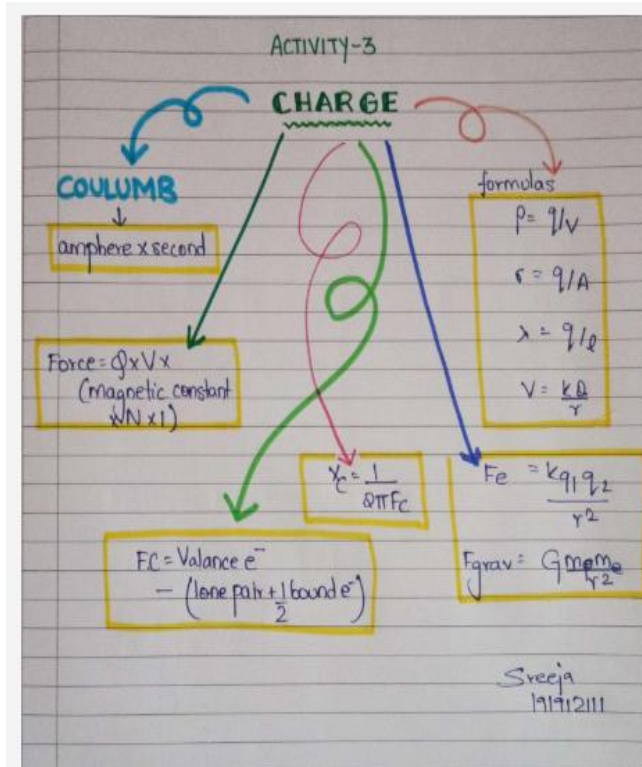 ACTIVITY-3
CHARGE
COULUMB
amphere x second
formulas
ρ = q/V
σ = q/A
λ = q/l
V = kQ/r
Force = Q x V x
(magnetic constant
x N x I)
Xc = 1/2πFc
Fe = kq1q2/r2
Fgrav = G meme/r2
F.C = Valance e-
- (lone pair + 1/2 bound e-)
Sreeja
191912111